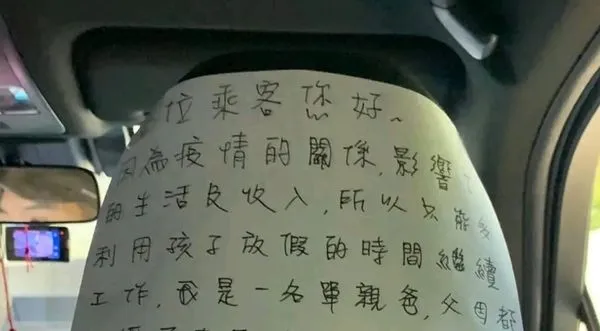 位乘客您好~
因為疫情的關係,影響
的生活及收入,所以只能多
利用孩子放假的時間繼續
工作,我是一名單親爸,父母都